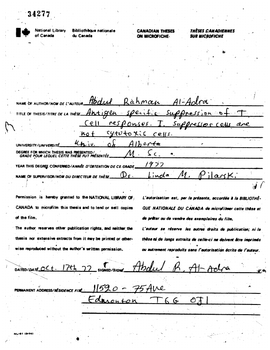 34277
National Library of Canada
Bibliothèque nationale du Canada
CANADIAN THESES ON MICROFICHE
THÈSES CANADIENNES SUR MICROFICHE
NAME OF AUTHOR/NOM DE L'AUTEUR Abdul Rahman Al-Adra
TITLE OF THESIS/TITRE DE LA THÈSE Antigen specific suppression of T
Cell responses. I. Suppressor cells are
not cytotoxic cells.
UNIVERSITY/UNIVERSITÉ Univ. of Alberta
DEGREE FOR WHICH THESIS WAS PRESENTED/
GRADE POUR LEQUEL CETTE THÈSE FUT PRÉSENTÉE M. Sc.
YEAR THIS DEGREE CONFERRED/ANNÉE D'OBTENTION DE CE GRADE 1977
NAME OF SUPERVISOR/NOM DU DIRECTEUR DE THÈSE Dr. Linda M. Pilarski
Permission is hereby granted to the NATIONAL LIBRARY OF
CANADA to microfilm this thesis and to lend or sell copies of
the film.
The author reserves other publication rights, and neither the
thesis nor extensive extracts from it may be printed or other-
wise reproduced without the author's written permission.
L'autorisation est, par la présente, accordée à la BIBLIOTHÈ-
QUE NATIONALE DU CANADA de microfilmer cette thèse et
de prêter ou de vendre des exemplaires du film.
L'auteur se réserve les autres droits de publication; ni la
thèse ni de longs extraits de celle-ci ne doivent être imprimés
ou autrement reproduits sans l'autorisation écrite de l'auteur.
DATED/DATÉ Oct. 17th 77 SIGNED/SIGNÉ Abdul R. Al-Adra
PERMANENT ADDRESS/RÉSIDENCE FIXE 11520-75 Ave
Edmonton T6G 0J1